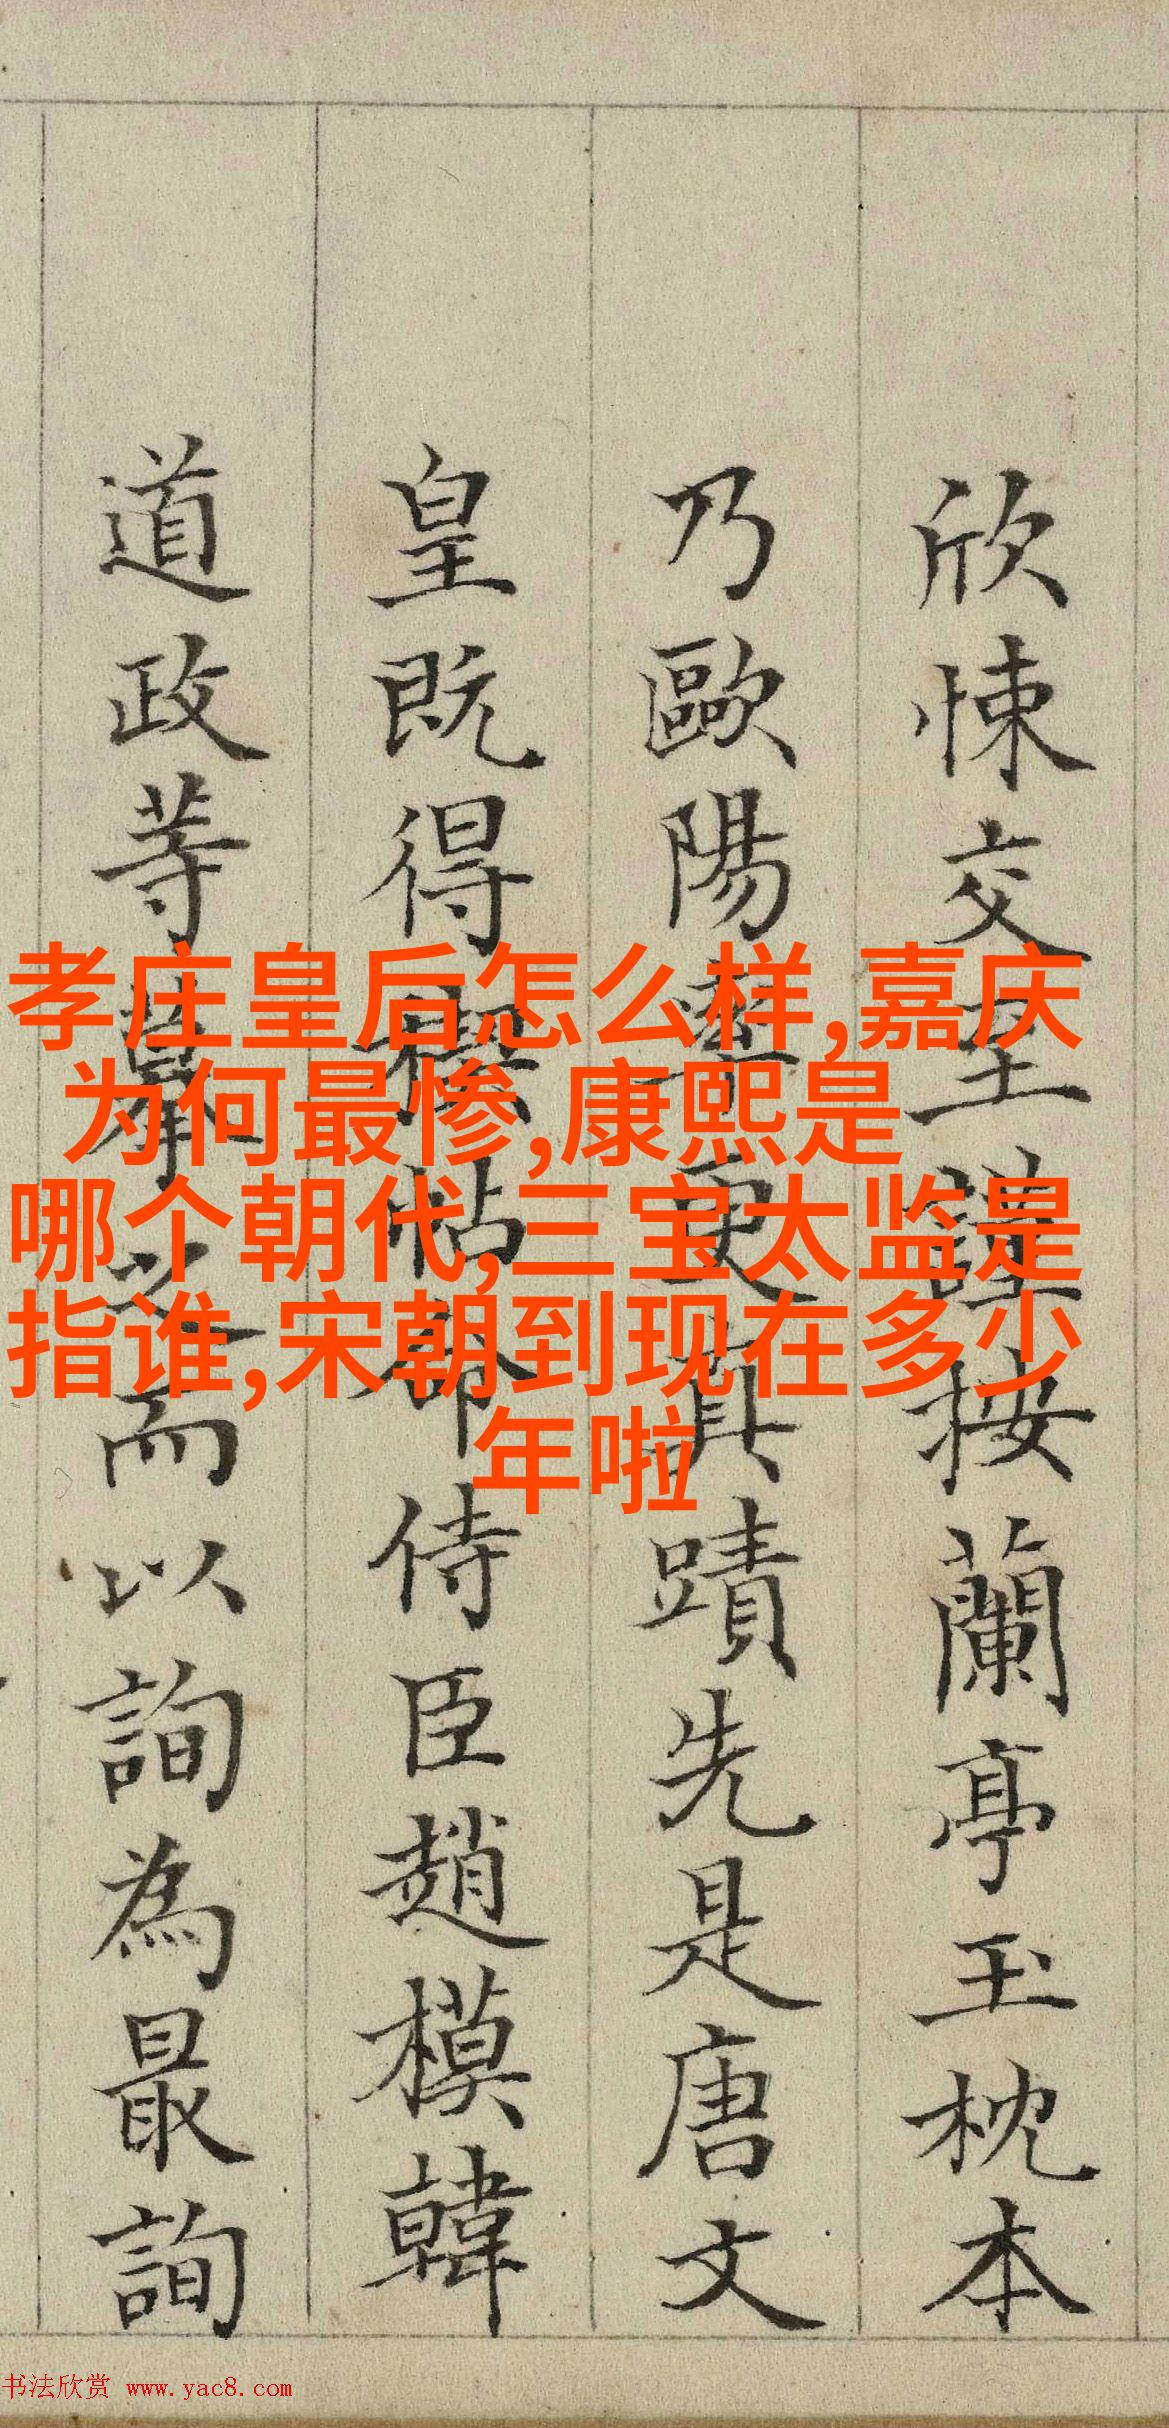 欣悚交至謹按蘭亭玉枕本
乃歐陽率更真蹟先是唐文
皇既得禊帖命侍臣趙模韓
道政等摹之而以詢為最詢
孝庄皇后怎么样,嘉庆
为何最惨,康熙是
哪个朝代,三宝太监是
指谁,宋朝到现在多少
年啦
书法欣赏 www.yac8.com